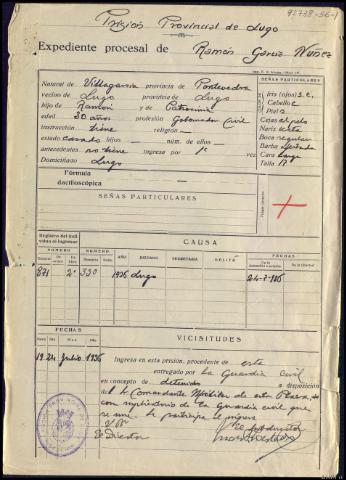 92738-56-1
Prisión Provincial de Lugo
Expediente procesal de Ramón García Núñez
Natural de Villagarcía provincia de Pontevedra
vecino de Lugo provincia de Lugo
hijo de Ramón y de Patrocinio
edad 30 años profesión Gobernador Civil
instrucción tiene religión
estado casado hijos núm. de ellos
antecedentes no tiene ingresa por 1ª vez
Domiciliado Lugo
SEÑAS PARTICULARES
Iris (ojos)
Cabello
Piel
Cejas al pelo
Nariz recta
Boca regular
Barba
Cara larga
Talla
Fórmula
dactiloscópica
SEÑAS PARTICULARES
Registro del indi-
viduo al ingresar
CAUSA
NÚMERO NÚMERO AÑO JUZGADO SECRETARÍA DELITO FECHAS
871 2º 330 1936 Lugo 24-7-936
FECHAS
VICISITUDES
Día Mes Año
19 24 Julio 1936 Ingresa en esta prisión, procedente de esta
entregado por la Guardia Civil
en concepto de detenido a disposición
del Sr. Comandante Militar de esta Plaza,
con duplicado de la Guardia Civil que
se une. Se participa el ingreso
Vº Bº
El Director